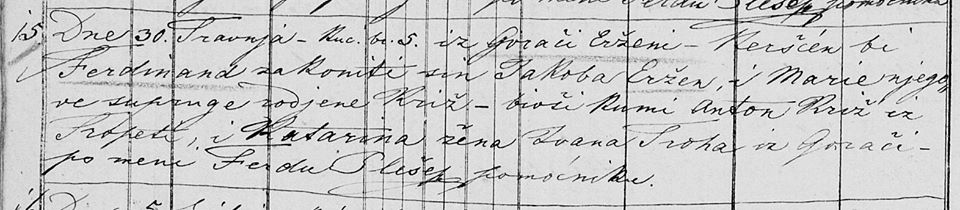 po meni Ferdu Plešep pomoćnika
15 Dne 30. Travnja – kuc. br. 5. iz Gorači Erženi – Keršćen bi
Ferdinand zakoniti sin Jakoba Eržen, i Marie njego
ve supruge rodjene Križ – bivši kumi Anton Križ iz
Tropeti, i Katarina žena Ivana Troha iz Gorači –
po meni Ferdu Plešep pomoćniku.